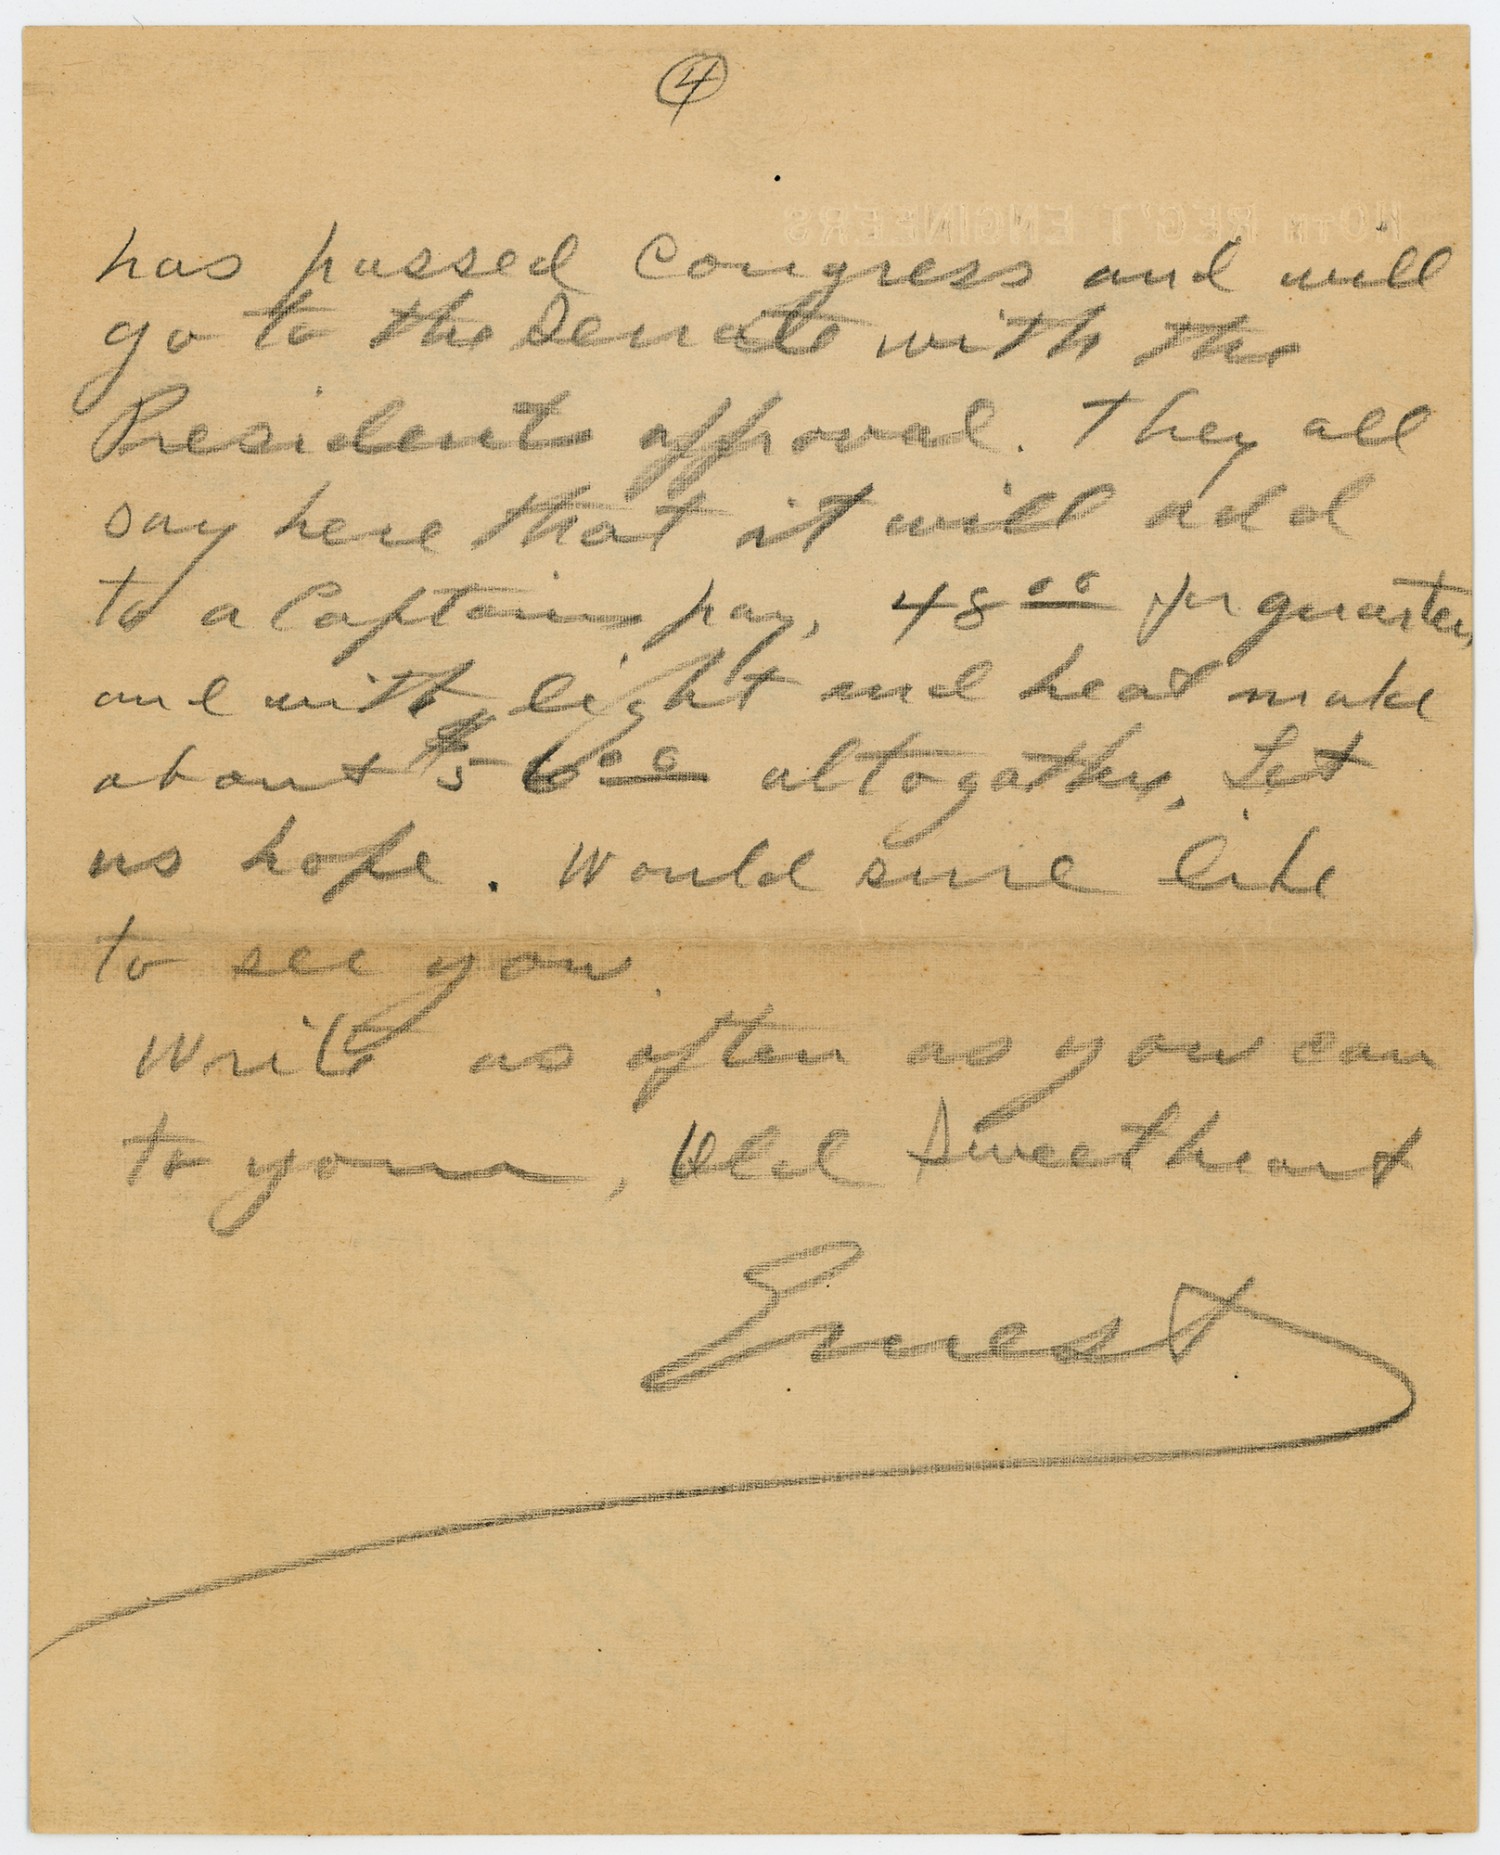 4
110TH REG'T ENGINEERS
has passed Congress and will
go to the Senate with the
Presidents approval. They all
say here that it will add
to a Captains pay, 48⁰⁰ for quarters,
and with light and heat make
about $56⁰⁰ altogather, Let
us hope. Would sure like
to see you.
Write as often as you can
to your, Old Sweetheart
Ernest